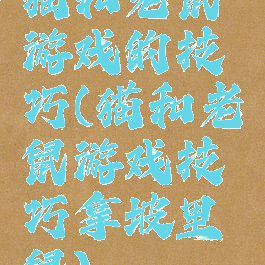 猫和老鼠
游戏的技
巧(猫和老
鼠游戏技
巧拿坡里
鼠)